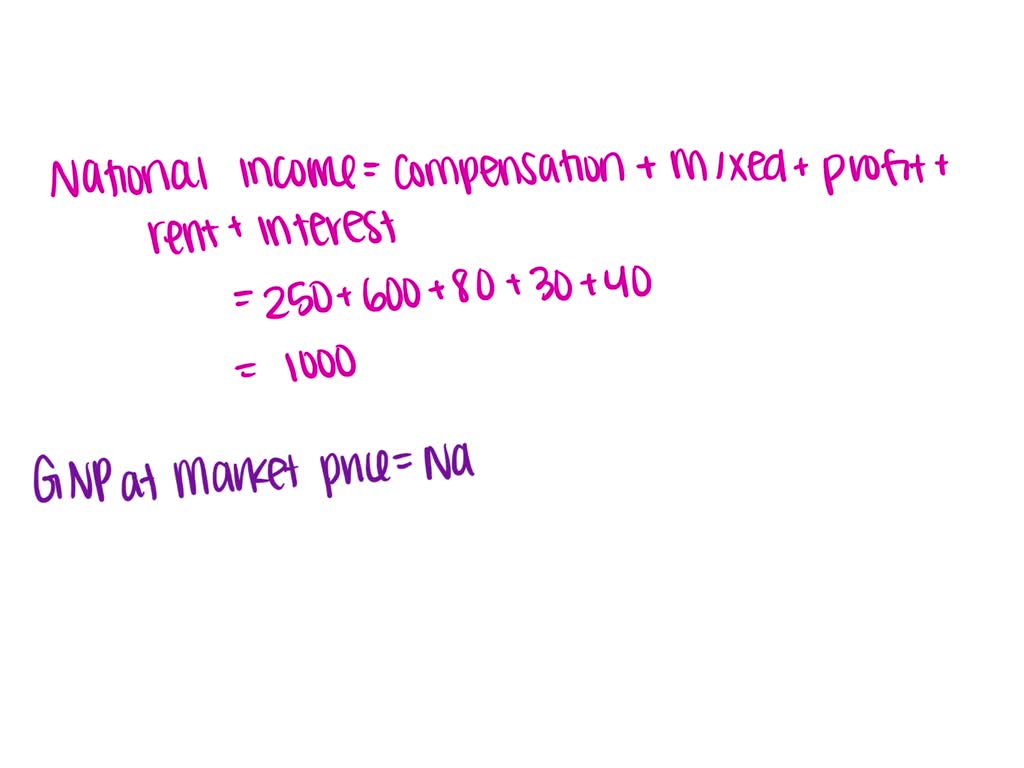 National income = compensation + mixed + profit +
rent + interest
= 250 + 600 + 80 + 30 + 40
= 1000
GNP at market price = Na